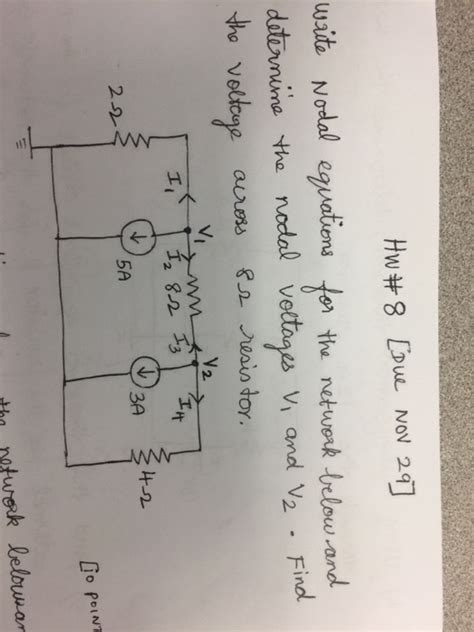 HW#8 [Due NOV 29]
Write Nodal equations for the network below and
determine the nodal voltages V1 and V2. Find
the voltage across 8Ω resistor.
I1 V1 I2 8Ω I3 V2 I4
2Ω 5A 3A 4Ω
[10 POINT
the network below an